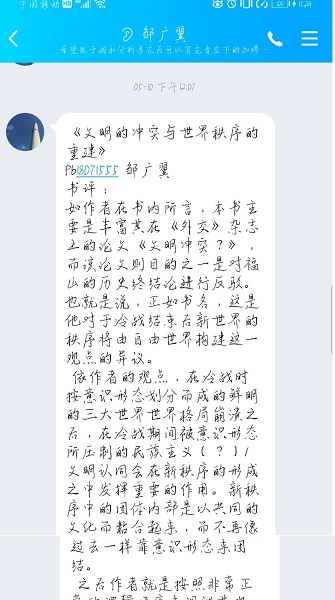 中国移动 HD 4G 11:24
邹广翼
05-10 下午12:07
《文明的冲突与世界秩序的
重建》
Pb18071555 邹广翼
书评：
如作者在书内所言，本书主
要是丰富其在《外交》杂志
上的论文《文明冲突？》，
而该论文则目的之一是对福
山的历史终结论进行反驳。
也就是说，正如书名，这是
他对于冷战结束后新世界的
秩序将由自由世界构建这一
观点的异议。
依作者的观点，在冷战时
按意识形态划分而成的鲜明
的三大世界世界格局崩溃之
后，在冷战期间被意识形态
所压制的民族主义（？）/
文明认同会在新秩序的形成
之中发挥重要的作用。新秩
序中的团体内部是以共同的
文化而粘合起来，而不再像
过去一样靠意识形态来团
结。
之后作者就是按照非常正